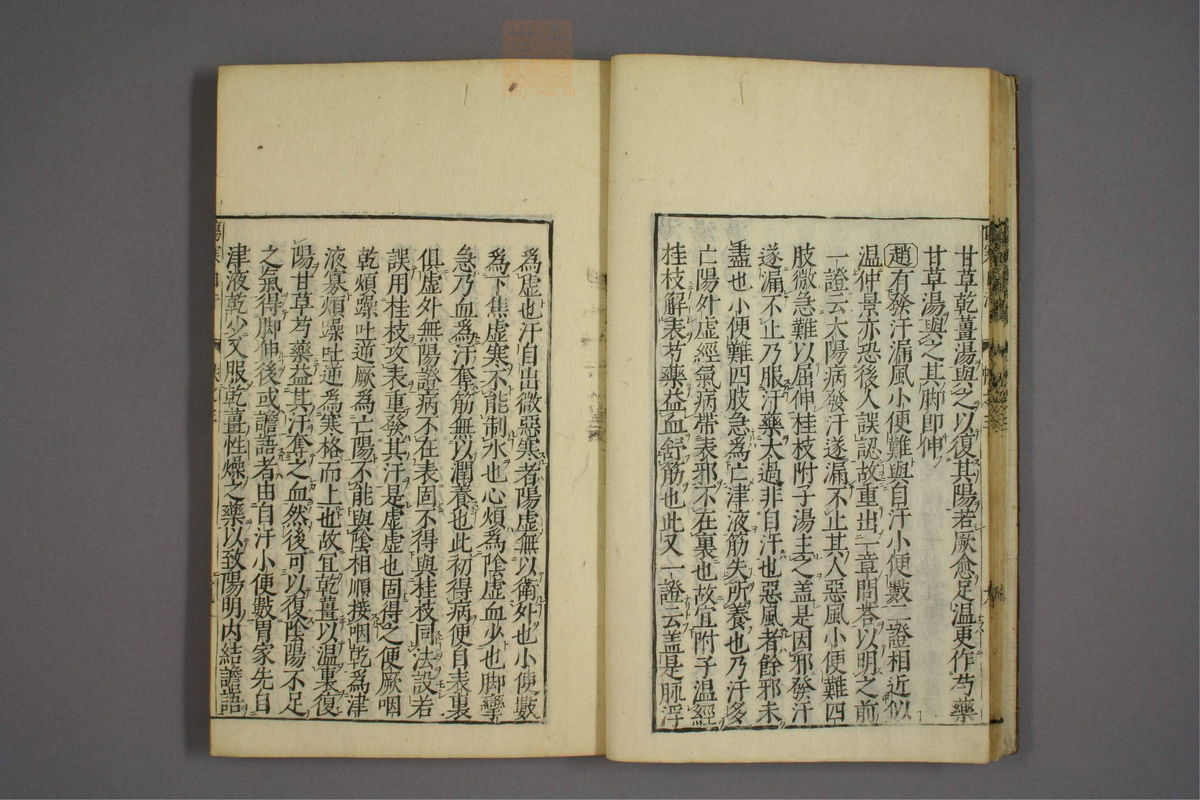 甘草乾薑湯與之以復其陽若厥愈足温更作芍藥
甘草湯與之其脚即伸
趙有發汗漏風小便難與自汗小便數二證相近似
温仲景亦恐後人誤認故重出一章問荅以明之前
一證云太陽病發汗遂漏不止其人惡風小便難四
肢微急難以屈伸桂枝附子湯主之蓋是因邪發汗
遂漏不止乃服汗藥太過非自汗也惡風者餘邪未
盡也小便難四肢急為亡津液筋失所養也乃汗多
亡陽外虛經氣病帶表邪不在裏也故宜附子温經
桂枝解表芍藥益血舒筋也此又一證云盖是脉浮
為虛也汗自出微惡寒者陽虛無以衛外也小便數
為下焦虛寒不能制水也心煩為陰虛血少也脚攣
急乃血為汗奪筋無以潤養也此初得病便自表裏
俱虛外無陽證病不在表固不得與桂枝同法設若
誤用桂枝攻表重發其汗是虛虛也固得之便厥咽
乾煩躁吐逆厥為亡陽不能與陰相順接咽乾為津
液寡煩躁吐逆為寒格而上也故宜乾薑以温裏復
陽甘草芍藥益其汗奪之血然後可以復陰陽不足
之氣得脚伸後或譫語者由自汗小便數胃家先自
津液乾少又服乾薑性燥之藥以致陽明内結譫語